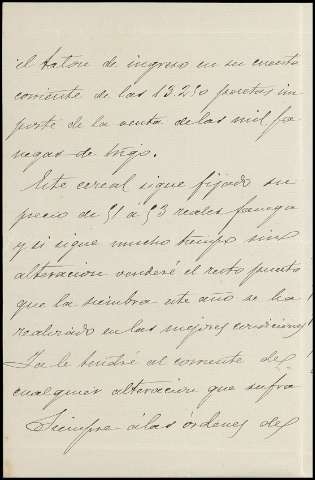 el talon de ingreso en su cuenta
corriente de las 13.250 pesetas im
porte de la venta de las mil fa
negas de trigo.
Este cereal sigue fijado su
precio de 51 á 53 reales fanega
y si sigue mucho tiempo sin
alteracion venderé el resto puesto
que la siembra este año se ha
realizado en las mejores condiciones
Ya le tendré al corriente de
cualquier alteracion que sufra
Siempre á las órdenes de